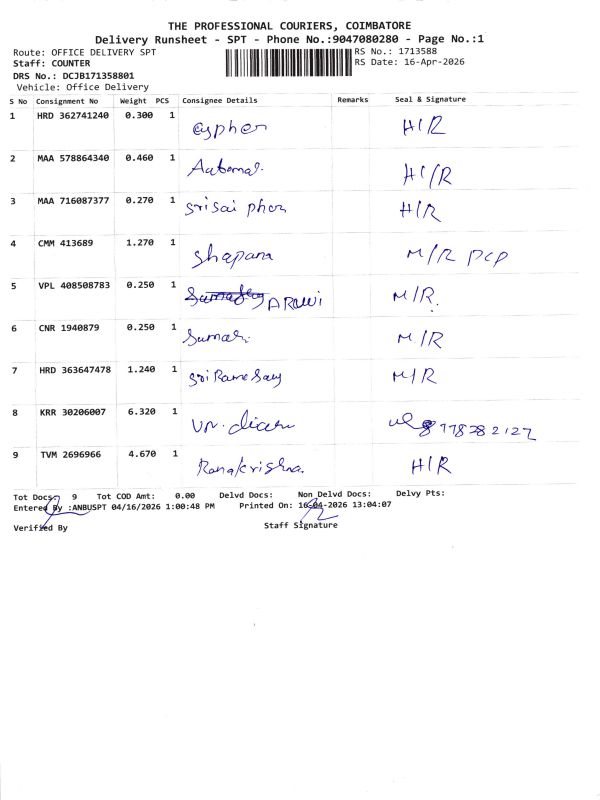 THE PROFESSIONAL COURIERS, COIMBATORE
Delivery Runsheet - SPT - Phone No.:9047080280 - Page No.:1
Route: OFFICE DELIVERY SPT RS No.: 1713588
Staff: COUNTER RS Date: 16-Apr-2026
DRS No.: DCJB171358801
Vehicle: Office Delivery
S No Consignment No Weight PCS Consignee Details Remarks Seal & Signature
1 HRD 362741240 0.300 1 cypher H/R
2 MAA 578864340 0.460 1 H/R
3 MAA 716087377 0.270 1 srisai phor H/R
4 CMM 413689 1.270 1 shapana M/R PCP
5 VPL 408508783 0.250 1 M/R.
6 CNR 1940879 0.250 1 M/R
7 HRD 363647478 1.240 1 M/R
8 KRR 30206007 6.320 1
9 TVM 2696966 4.670 1 Ramakrishna. H/R
Tot Docs: 9 Tot COD Amt: 0.00 Delvd Docs: Non Delvd Docs: Delvy Pts:
Entered By :ANBUSPT 04/16/2026 1:00:48 PM Printed On: 16-04-2026 13:04:07
Verified By Staff Signature